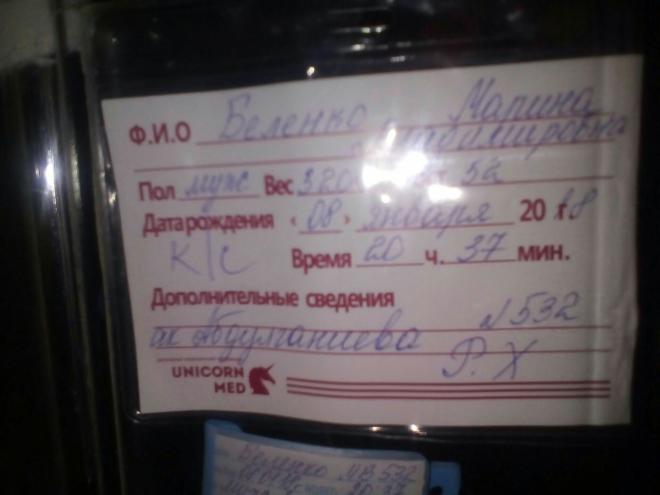 Ф.И.О Беленко Марина
Владимировна
Пол муж Вес 320 52
Дата рождения «08» января 20 18
К/С Время 20 ч. 37 мин.
Дополнительные сведения
ак Абдулганиева N 532
Р. Х
UNICORN
MED
Беленко М.В 532